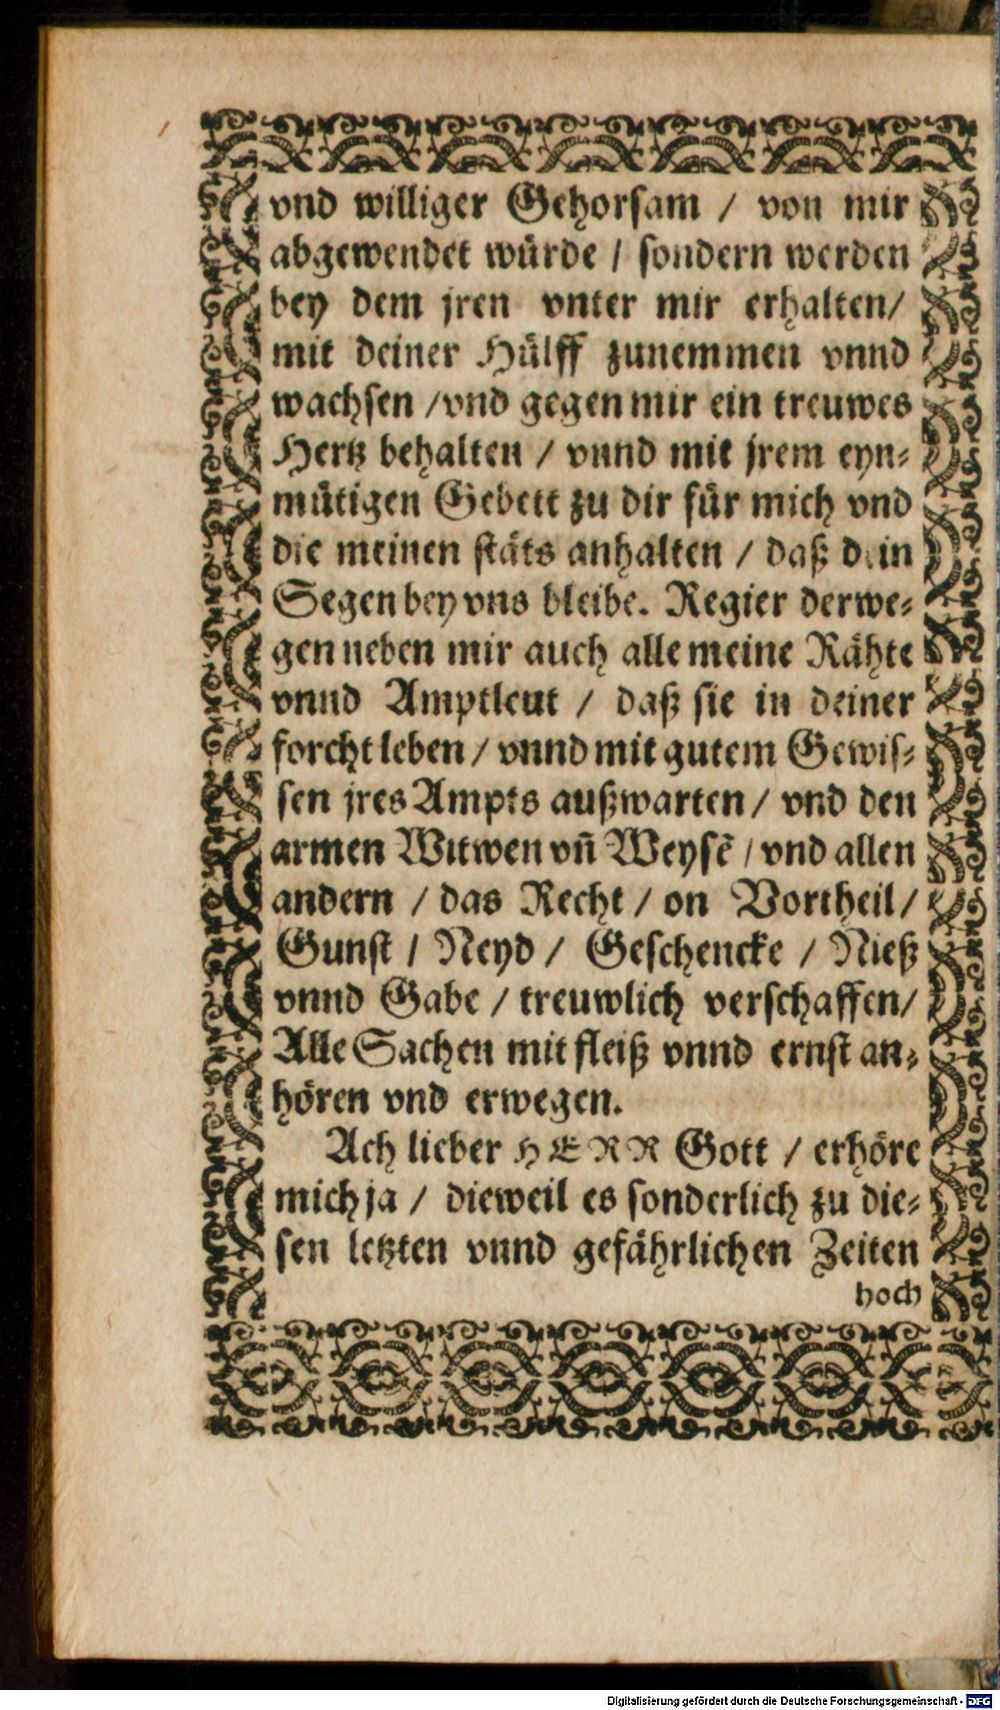 vnd williger Gehorsam / von mir
abgewendet würde / sondern werden
bey dem jren vnter mir erhalten/
mit deiner Hülff zunemmen vnnd
wachsen /vnd gegen mir ein treuwes
Hertz behalten / vnnd mit jrem eyn⸗
mütigen Gebett zu dir für mich vnd
die meinen stäts anhalten / daß dein
Segen bey vns bleibe. Regier derwe⸗
gen neben mir auch alle meine Rähte
vnnd Amptleut / daß sie in deiner
forcht leben / vnnd mit gutem Gewis⸗
sen jres Ampts außwarten / vnd den
armen Witwen vñ Weysẽ / vnd allen
andern / das Recht / on Vortheil/
Gunst / Neyd / Geschencke / Nieß
vnnd Gabe / treuwlich verschaffen/
Alle Sachen mit fleiß vnnd ernst an⸗
hören vnd erwegen.
Ach lieber HERR Gott / erhöre
mich ja / dieweil es sonderlich zu die⸗
sen letzten vnnd gefährlichen Zeiten
hoch
Digitalisierung gefördert durch die Deutsche Forschungsgemeinschaft - DFG